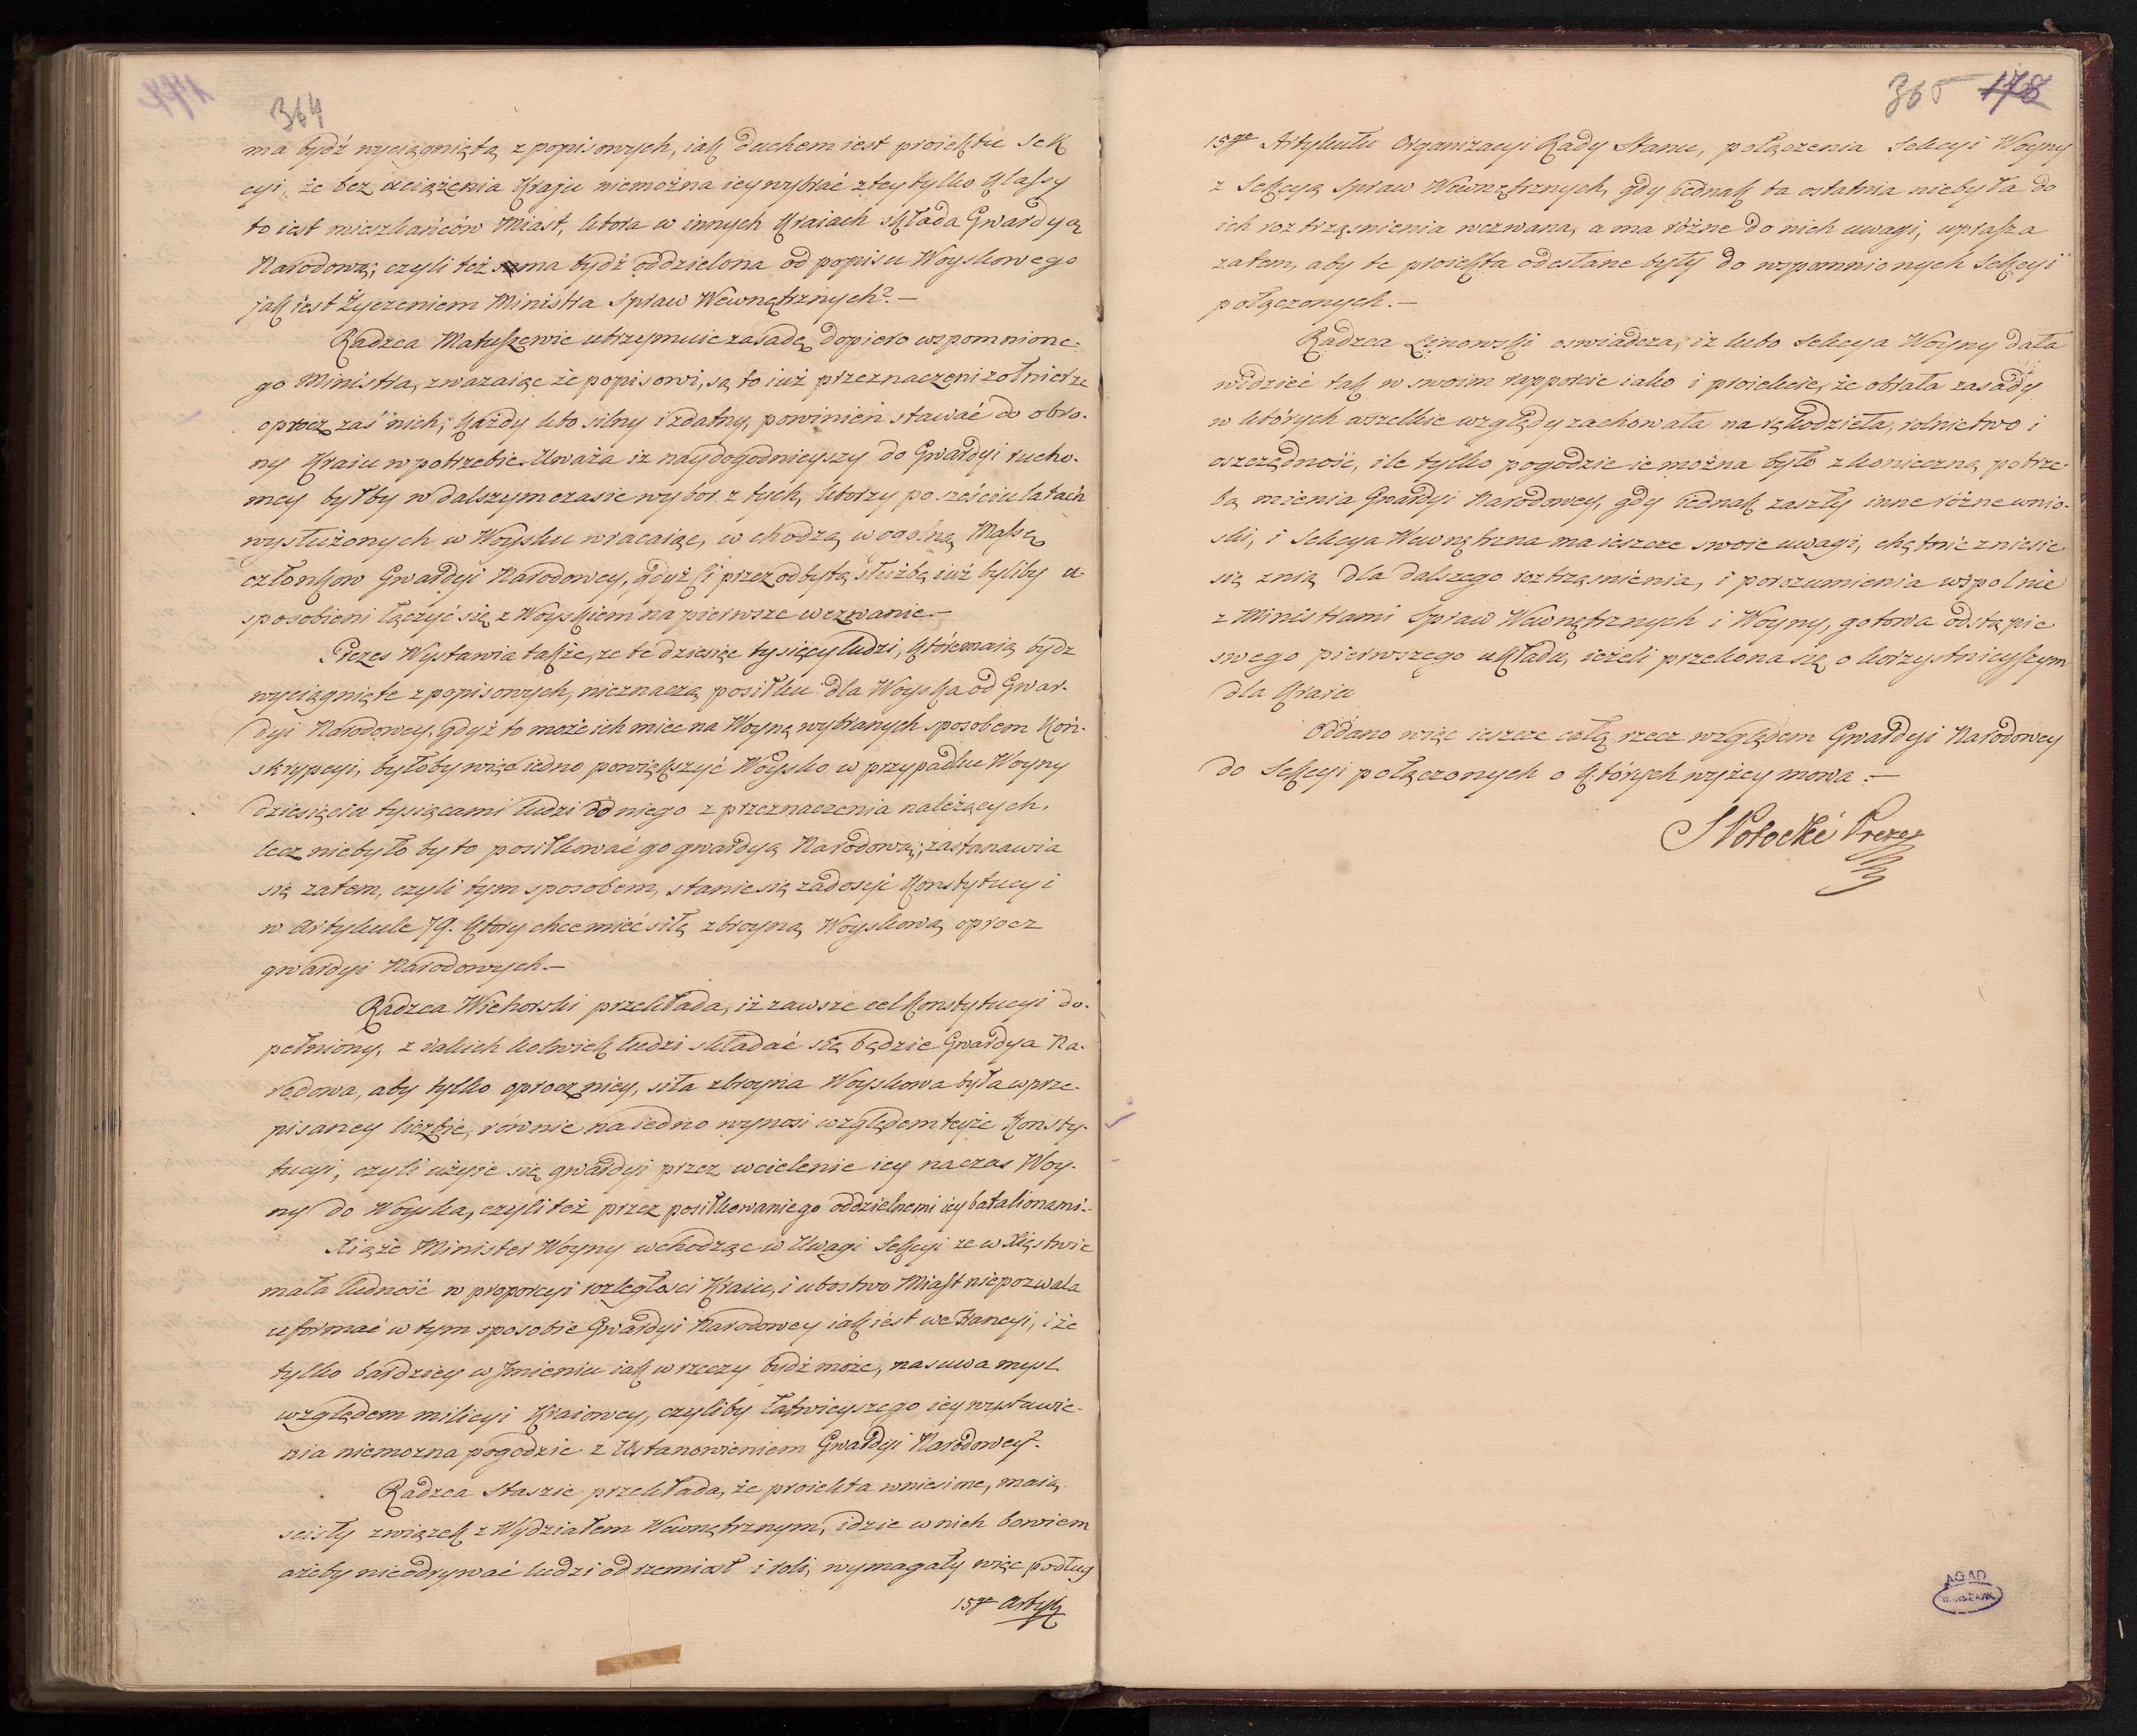 364
ma bydź wyciągniętą z popisowych, iak duchem iest proiektu Sek
cyi, że bez uciążenia Kraju niemożna iey wybrać z tey tylko Klassy
to iest mieszkańców Miast, ktora w innych Kraiach składa Gwardyą
Narodową; czyli też ma bydź oddzielona od popisu Woyskowego
jak iest Życzeniem Ministra Spraw Wewnętrznych? —
Radzca Matuszewic utrzymuie zasadę dopiero wspomnione-
go Ministra, zwazaiąc że popisowi, są to iuż przeznaczeni zołnierze
oprocz zaś nich, każdy kto silny i zdatny, powinien stawać do obro-
ny Kraiu w potrzebie. Uważa iz naydogodnieyszy do Gwardyi rucho-
mey byłby w dalszym czasie wybor z tych, ktorzy po sześciu latach
wysłużonych w Woysku wracaiąc, wchodzą w ogolną Massę
członkow Gwardyi Narodowey, gdyż ci przez odbytą służbę iuż byliby u-
sposobieni łączyć się z Woyskiem na pierwsze wezwanie —
Prezes Wystawia także, ze te dziesięc tysięcy ludzi, które maią bydz
wyciągnięte z popisowych, nieznaczą posiłku dla Woyska od Gwar-
dyi Narodowey, gdyż to może ich miec na Woynę wybranych sposobem Kon-
skrypcyi, byłoby więc iedno powiększyć Woysko w przypadku Woyny
dziesięcia tysięcami ludzi do niego z przeznaczenia należących,
lecz niebyłoby to posiłkować go gwardyą Narodową; zastanawia
się zatem, czyli tym sposobem, stanie się zadosyć Konstytucyi
w Artykule 79. ktory chce mieć siłę zbroyną Woyskową oprocz
gwardyi Narodowych —
Radzca Wichorski przekłada, iż zawsze cel Konstytucyi do-
pełniony, z iakich kolwiek ludzi składać się będzie Gwardya Na-
rodowa, aby tylko oprocz niey, siła zbroyna Woyskowa była w prze-
pisaney liczbie, rôwnie na iedno wynosi względem teyże Konsty-
tucyi, czyli użyie się gwardyi przez wcielenie iey na czas Woy-
ny do Woyska, czyli też przez posiłkowanie go oddzielnemi iey batalionami —
Xiąże Minister Woyny wchodząc w Uwagi Sekcyi ze w Xięstwie
mała ludność w proporcyi rozległosci Kraiu, i ubostwo Miast niepozwala
uformać w tym sposobie Gwardyi Narodowey iak iest we Francyi, i że
tylko bardziey w Jmieniu iak w rzeczy bydź może, nasuwa mysl
względem milicyi Kraiowey, czyliby łatwieyszego iey wystawie-
nia niemozna pogodzic z Ustanowieniem Gwardyi Narodowey? —
Radzca Staszic przekłada, że proiekta wniesione, maią
scisły związek z Wydziałem Wewnętrznym, idzie w nich bowiem
ażeby nieodrywać ludzi od rzemiosł i roli, wymagały więc podług
15go Artyk
365 178
15go Artykułu Organizacyi Rady Stanu, połączenia Sekcyi Woyny
z Sekcyą Spraw Wewnętrznych, gdy iednak ta ostatnia niebyła do
ich roztrząsnienia wezwana, a ma różne do nich uwagi, uprasza
zatem, aby te proiekta odesłane były do wspomnionych Sekcyi
połączonych. —
Radzca Linowski oswiadcza, iz lubo Sekcya Woyny dała
widzieć tak w swoim rapporcie iako i proiekcie, że obrała zasady
w których wszelkie względy zachowała na rękodzieła, rolnictwo i
oszczędność, ile tylko pogodzic ie można było z konieczną potrze-
bą mienia Gwardyi Narodowey, gdy iednak zaszły inne różne wnio-
ski, i Sekcya Wewnętrzna ma ieszcze swoie uwagi, chętnie zniesie
się z nią dla dalszego roztrząsnienia, i porozumienia wspolnie
z Ministrami Spraw Wewnętrznych i Woyny, gotowa odstąpic
swego pierwszego układu, ieżeli przekona się o korzystnieyszym
dla Kraiu
Oddano więc ieszcze całą rzecz względem Gwardyi Narodowey
do Sekcyi połączonych o których wyżey mowa —
S Potocki Prezes
AGAD
WARSZAWA